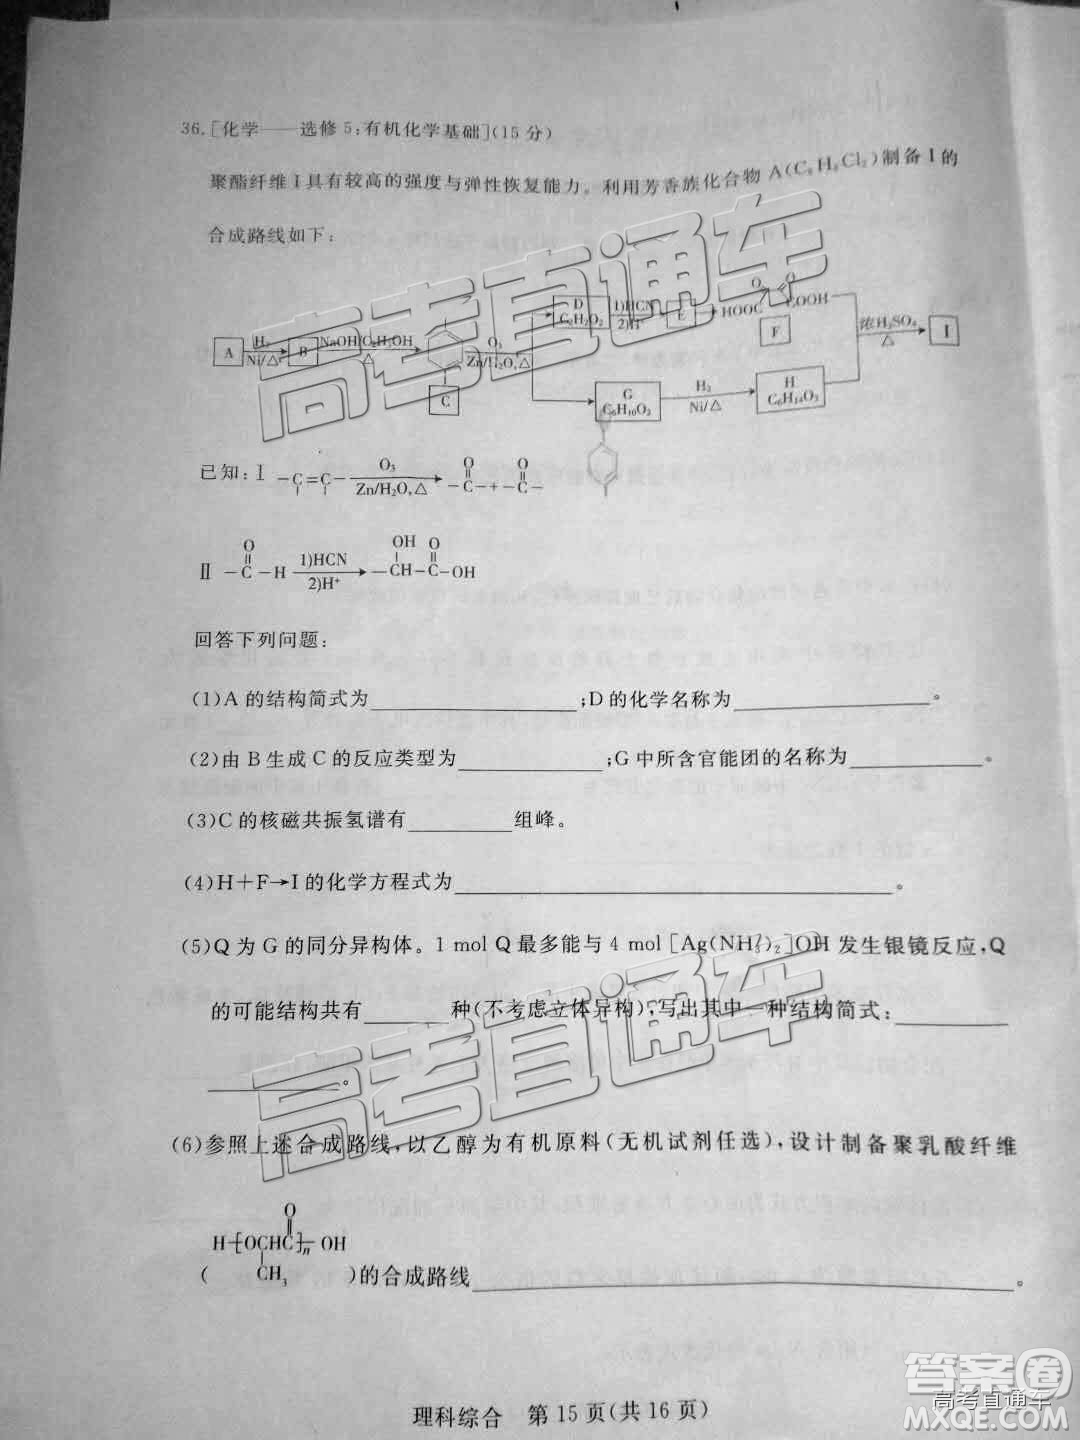 36.[化学——选修5:有机化学基础](15分)
聚酯纤维I具有较高的强度与弹性恢复能力。利用芳香族化合物A(C₈H₈Cl₂)制备I的
合成路线如下:
A H₂ Ni/△ B NaOH/C₂H₅OH △ C O₃ Zn/H₂O,△
D C₂H₂O₂ 1)HCN 2)H⁺ E HOOC O O COOH F 浓H₂SO₄ △ I
G C₆H₁₀O₂ H₂ Ni/△ H C₆H₁₄O₂
已知:Ⅰ -C=C- O₃ Zn/H₂O,△ -C- + -C- O O
Ⅱ -C-H O 1)HCN 2)H⁺ -CH-C-OH OH O
回答下列问题:
(1)A的结构简式为 ;D的化学名称为 。
(2)由B生成C的反应类型为 ;G中所含官能团的名称为 。
(3)C的核磁共振氢谱有 组峰。
(4)H+F→I的化学方程式为 。
(5)Q为G的同分异构体。1 mol Q最多能与4 mol [Ag(NH₃)₂]OH发生银镜反应,Q
的可能结构共有 种(不考虑立体异构),写出其中一种结构简式:
。
(6)参照上述合成路线,以乙醇为有机原料(无机试剂任选),设计制备聚乳酸纤维
( H-[OCHC]n-OH O CH₃ )的合成路线 。
理科综合 第15页(共16页)
高考直通车
高考直通车
答案圈
高考直通车
MXQE.COM